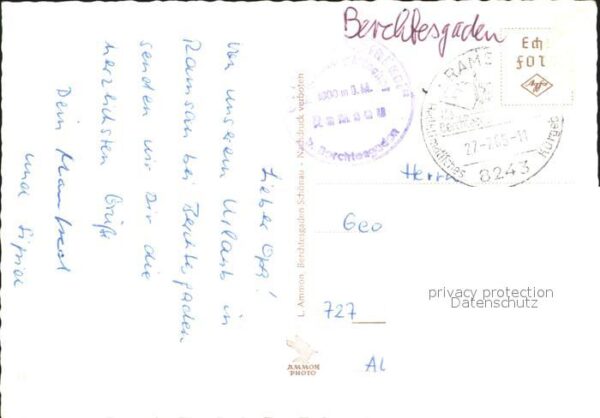 Berchtesgaden
Lieber Opa!
Von unserem Urlaub in
Ramsau bei Berchtesgaden
senden wir Dir die
herzlichsten Grüße
Dein Manfred
und Sigrid
L. Ammon, Berchtesgaden Schönau - Nachdruck verboten
AMMON
PHOTO
1000 m ü. M.
Berchtesgaden
RAMS
heilklimatisches
Kurgeb
8243
Agfa
Herrn
Geo
727
Al
privacy protection
Datenschutz